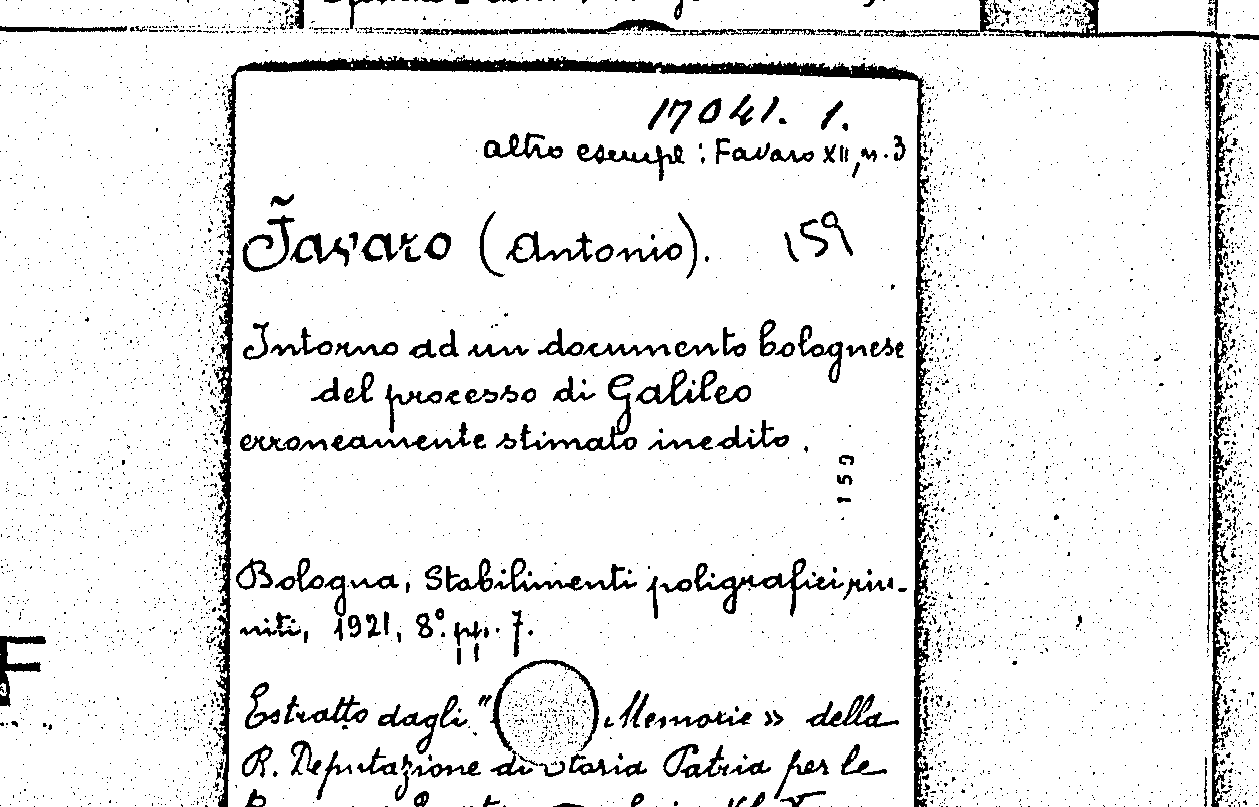 17041. 1.
altro esempl : Favaro XII, n. 3
Favaro (Antonio). 159
Intorno ad un documento bolognese
del processo di Galileo
erroneamente stimato inedito.
159
Bologna, Stabilimenti poligrafici riu-
niti, 1921, 8°. pp. 7.
Estratto dagli " Memorie » della
R. Deputazione di Storia Patria per le
F